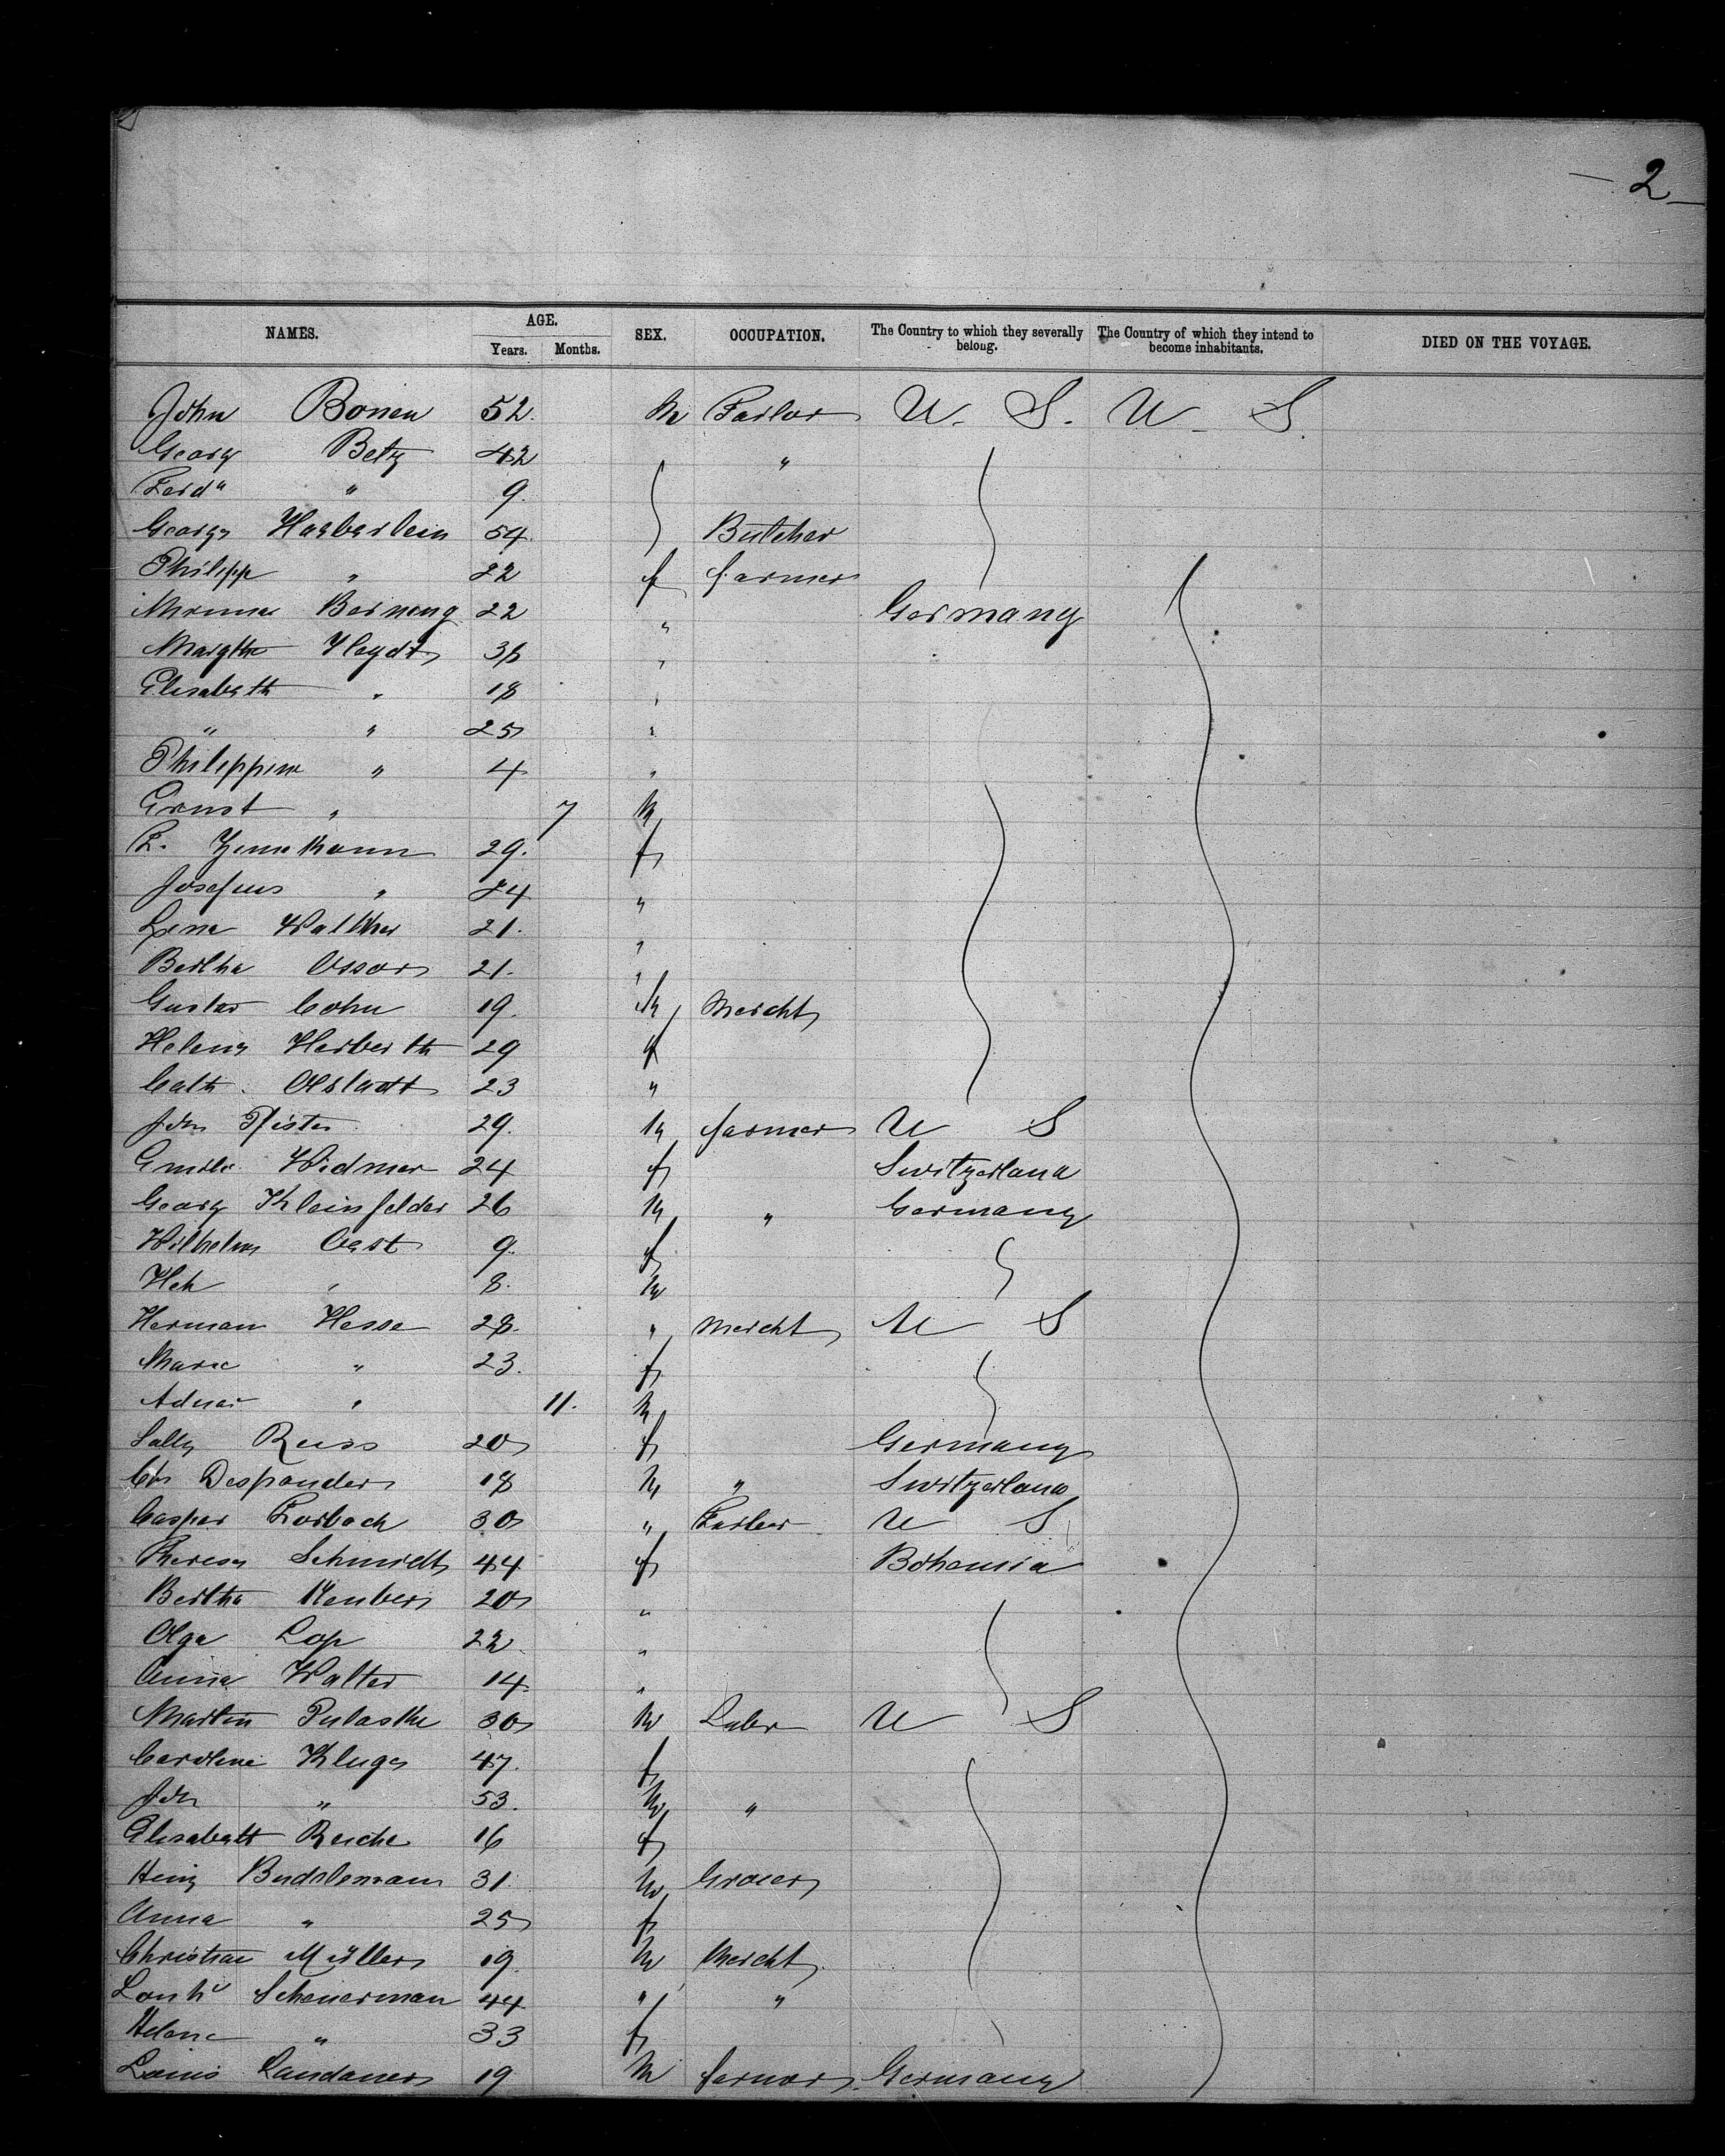 2
NAMES. AGE. SEX. OCCUPATION. The Country to which they severally belong. The Country of which they intend to become inhabitants. DIED ON THE VOYAGE.
Years. Months.
John Bonen 52. M Tailor U. S. U. S.
Georg Betz 42 "
Ferd" " 9.
Georg Haeberlein 54. Butcher
Philipp " 22 f farmer
Berneng 22 Germany
Margthe Heydt 36 "
Elisabeth " 18 "
" " 25 "
Philippine " 4 "
Ernst " 7 M
F. 29. f
" 24 "
Lena Walther 21. "
Bertha 21. "
Gustav Cohn 19. M Mercht
Helena Herberth 29 f
Cath. 23 "
Joh Pfister 29. M farmer U S
Emilie Widmer 24 f Switzerland
Georg Kleinfelder 26 M " Germany
Wilhelm 9. f
Hch " 8. M
Herman Hesse 28. " Mercht U S
Marie " 23. f
" 11. M
Sally Reiss 20 f Germany
18 M " Switzerland
Casper Lorbach 30 " U S
Theresa Schmidt 44 f Bohemia
Bertha 20 "
Olga 22 "
Anna Walter 14 "
Martin Pulaske 30 M Labr U S
Caroline Kluge 47. f
Joh " 53. M "
Elisabeth Reiche 16 f
31. M Grocer
Anna " 25 f
Christian Müller 19. M Mercht
Scheuerman 44 " "
Helene " 33 f
Louis Landauer 19 M farmer Germany